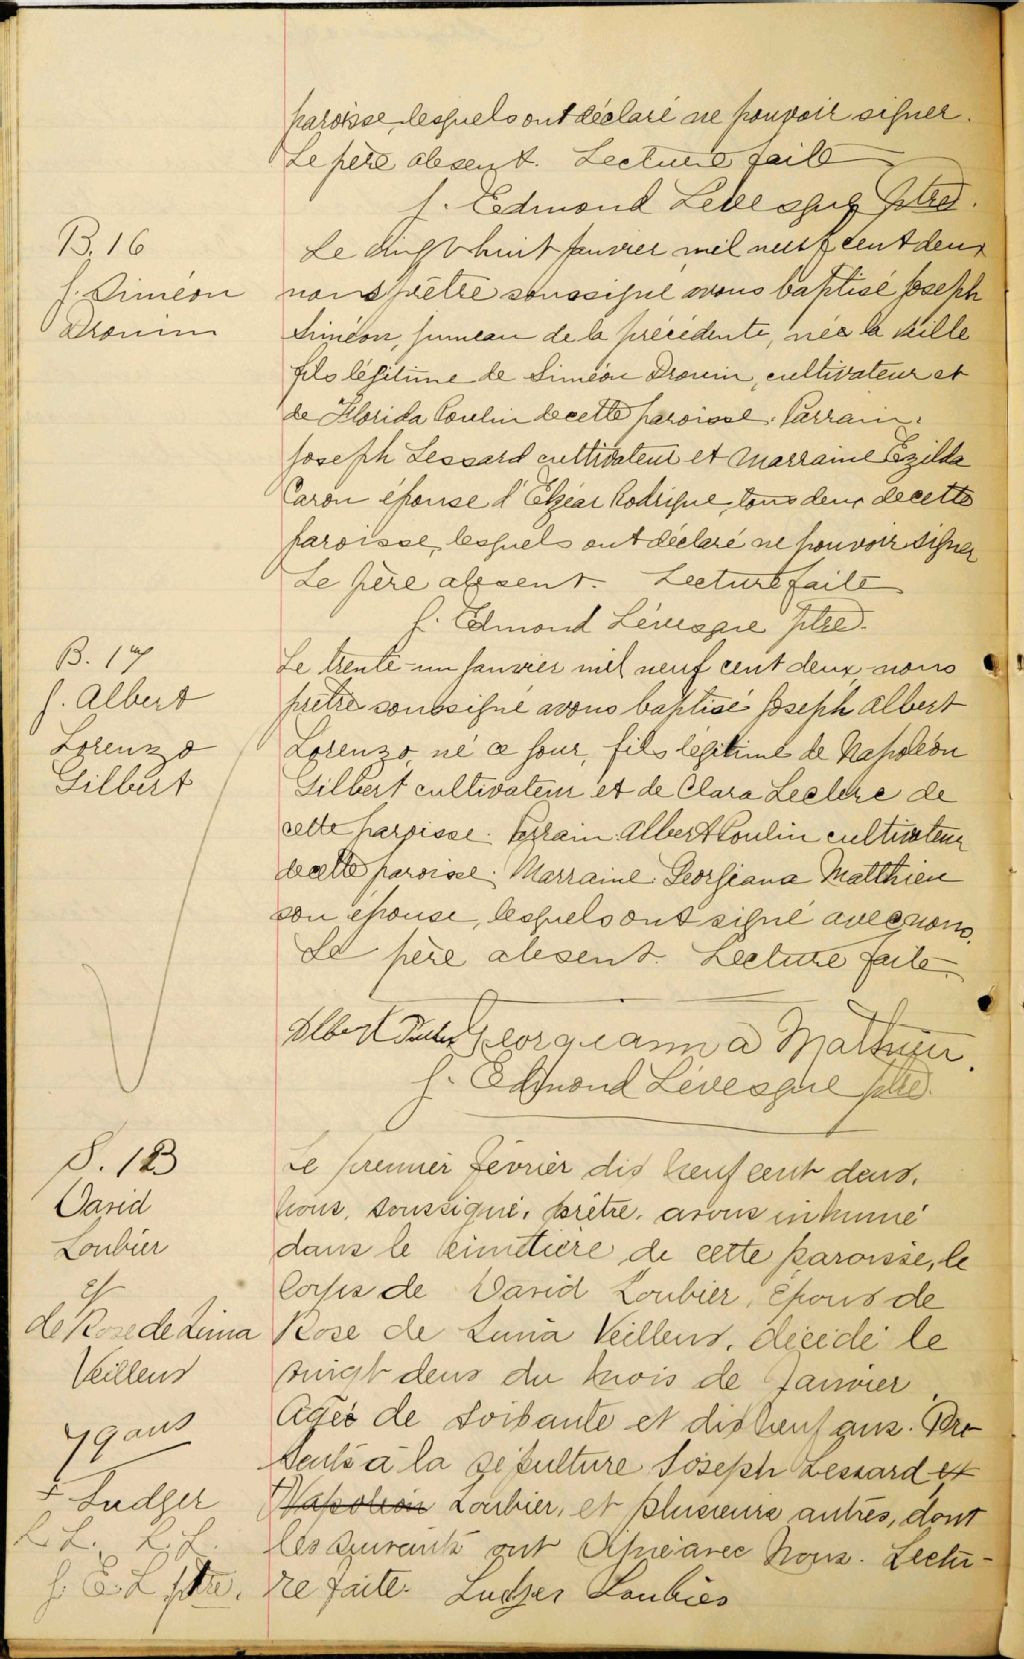 paroisse, lesquels ont déclaré ne pouvoir signer.
Le père absent. Lecture faite
J. Edmond Levesque ptre.
B. 16
J. Siméon
Drouin
Le vingt huit janvier mil neuf cent deux
nous prêtre soussigné avons baptisé Joseph
Siméon, jumeau de la précédente, née la veille
fils légitime de Siméon Drouin, cultivateur et
de Florida Poulin de cette paroisse. Parrain.
Joseph Lessard cultivateur et Marraine Ezilda
Caron épouse d'Elzéar Rodrigue, tous deux de cette
paroisse, lesquels ont déclaré ne pouvoir signer
Le père absent. Lecture faite
J. Edmond Lévesque ptre.
B. 17
J. Albert
Lorenzo
Gilbert
Le trente-un janvier mil neuf cent deux, nous
prêtre soussigné avons baptisé Joseph Albert
Lorenzo, né ce jour, fils légitime de Napoléon
Gilbert cultivateur et de Clara Leclerc de
cette paroisse. Parrain. Albert Poulin cultivateur
de cette paroisse; Marraine. Georgiana Matthieu
son épouse, lesquels ont signé avec nous.
Le père absent. Lecture faite.
Albert Georgianna Mathieu.
J. Edmond Lévesque ptre.
S. 1
David
Loubier
Ep
de Rose de Lima
Veilleux
79 ans
+ Ludger
L. L. L. L.
J. E. L. ptre.
Le premier février dix neuf cent deux,
nous, soussigné, prêtre, avons inhumé
dans le cimetière de cette paroisse, le
corps de David Loubier, Epoux de
Rose de Lima Veilleux, décédé le
vingt deux du mois de Janvier,
Agée de soixante et dix neuf ans. Pré-
sents à la sépulture Joseph Lessard et
+ Napoléon Loubier, et plusieurs autres, dont
les suivants ont signé avec Nous. Lectu-
re faite. Ludger Loubier